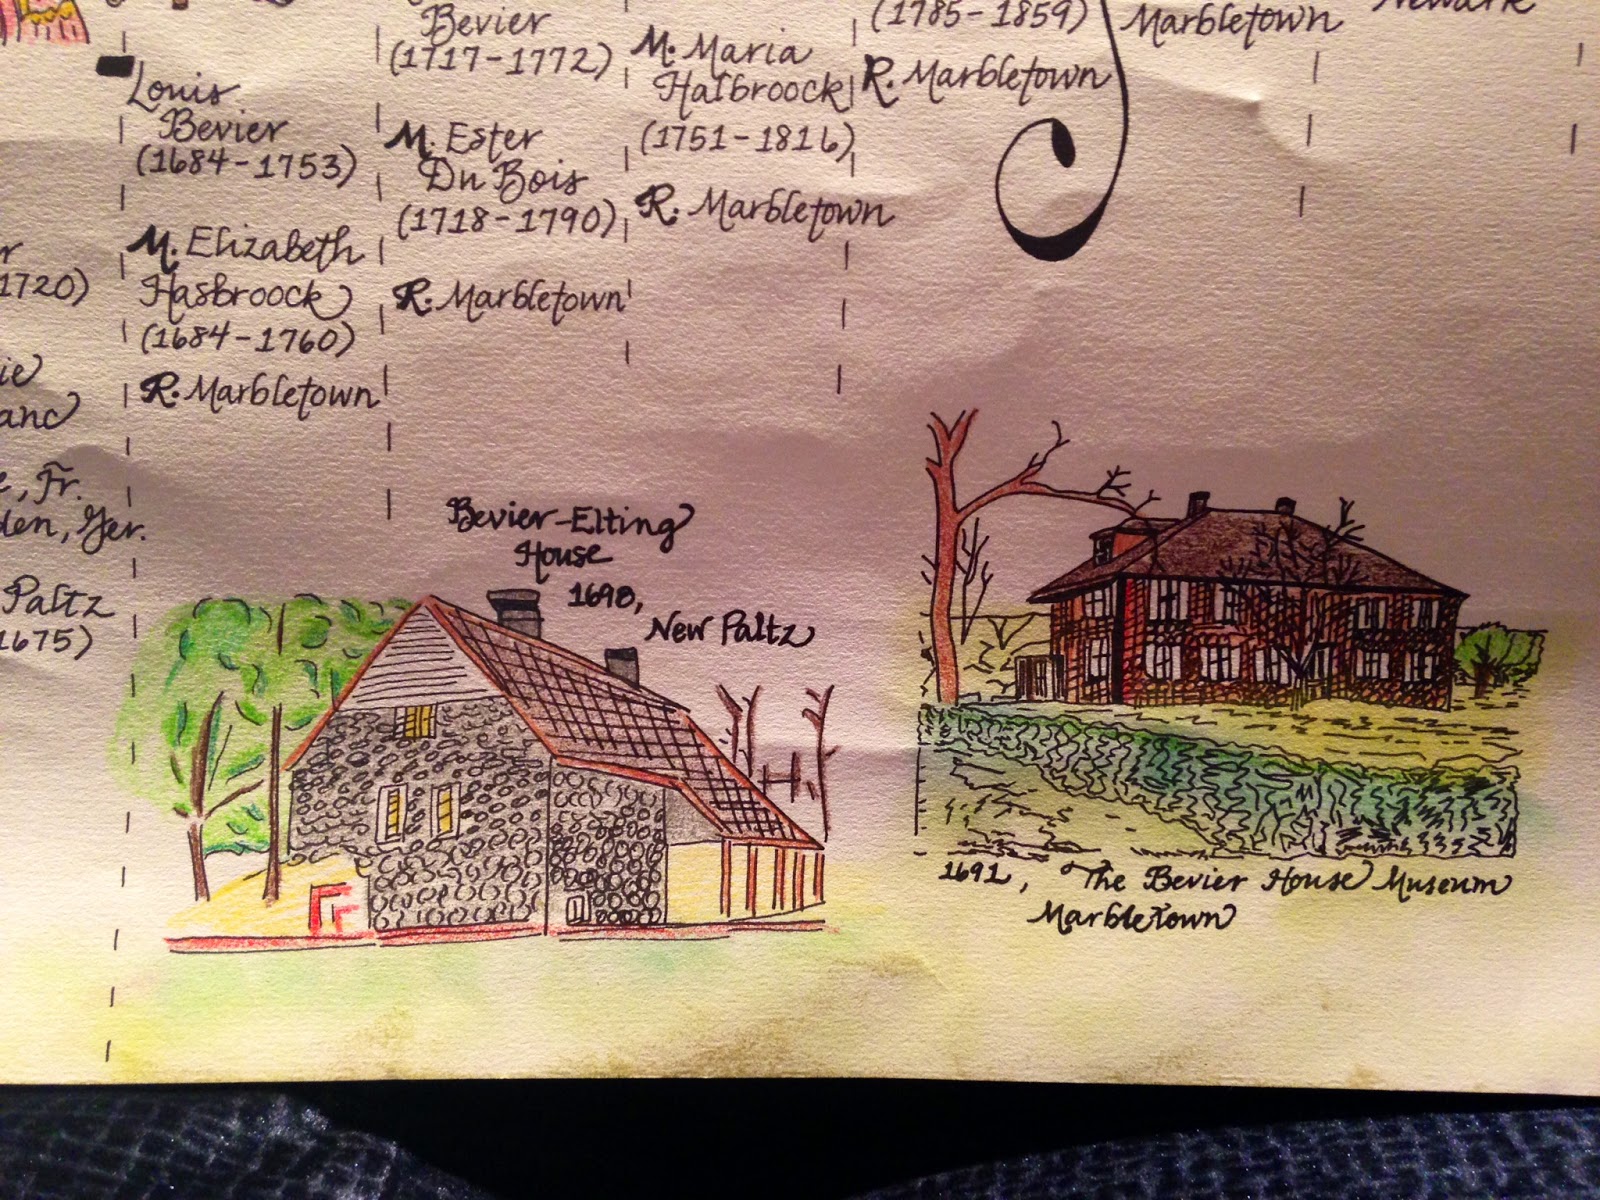 1720)
Paltz
1675)
, Fr.
den, Ger.
Louis
Bevier
(1684-1753)
M. Elizabeth
Hasbroock
(1684-1760)
R. Marbletown
Bevier
(1717-1772)
M. Ester
Du Bois
(1718-1790)
R. Marbletown
M. Maria
Halbroock
(1751-1816)
R. Marbletown
(1785-1859)
R. Marbletown
Marbletown
Newark
Bevier-Elting
House
1698,
New Paltz
1691, The Bevier House Museum
Marbletown